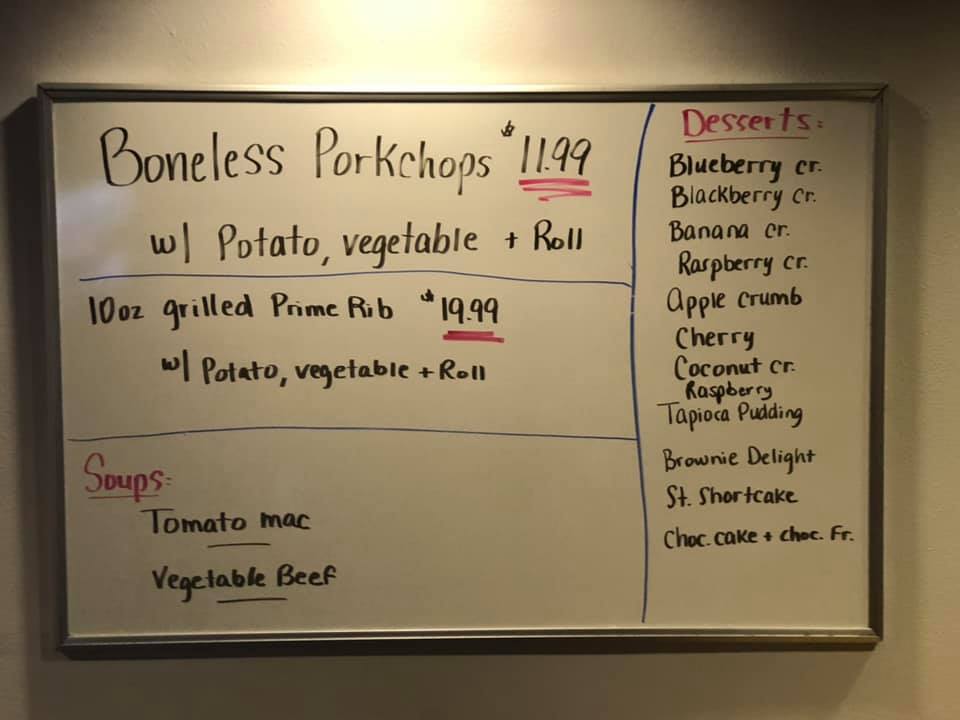 Boneless Porkchops $11.99
w/ Potato, vegetable + Roll
10oz grilled Prime Rib $19.99
w/ Potato, vegetable + Roll
Soups:
Tomato mac
Vegetable Beef
Desserts:
Blueberry cr.
Blackberry Cr.
Banana cr.
Raspberry cr.
Apple crumb
Cherry
Coconut cr.
Raspberry
Tapioca Pudding
Brownie Delight
St. Shortcake
Choc. cake + choc. Fr.